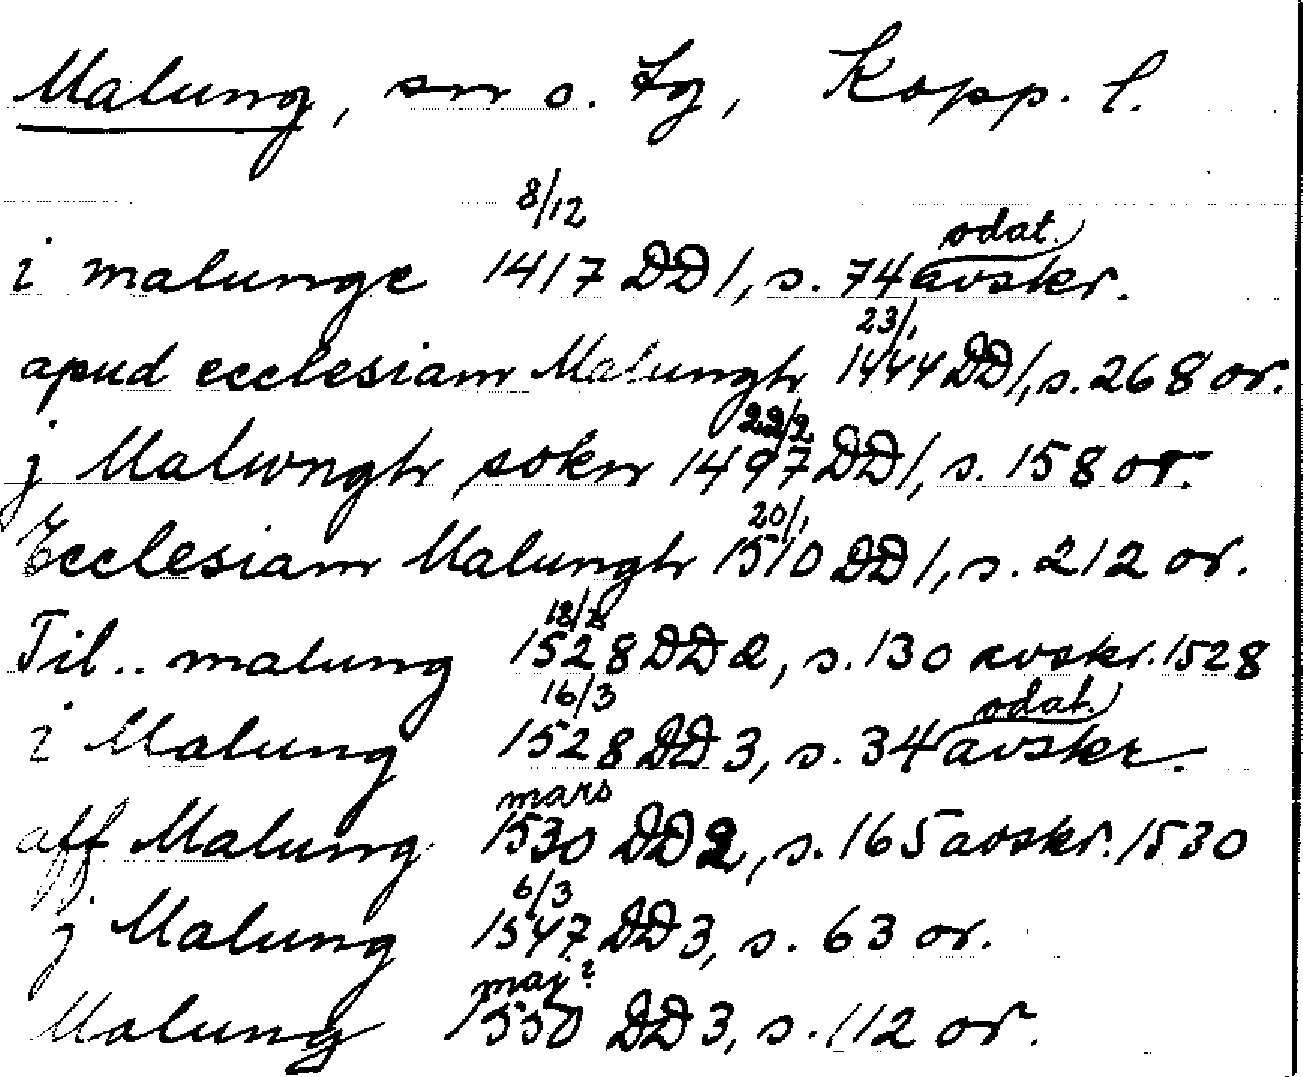 Malung, sn o. tg, Kopp. l.
i malunge 8/12 1417 DD 1, s. 74 odat. avskr.
apud ecclesiam Malungh 23/1 1444 DD 1, s. 268 or.
j Malwngh sokn 22/2 1497 DD 1, s. 158 or.
Ecclesiam Malungh 20/1 1510 DD 1, s. 212 or.
Til.. malung 1528 DD 2, s. 130 avskr. 1528
i Malung 16/3 1528 DD 3, s. 34 odat. avskr.
aff Malung mars 1530 DD 2, s. 165 avskr. 1530
j Malung 6/3 1547 DD 3, s. 63 or.
Malung maj? 1550 DD 3, s. 112 or.